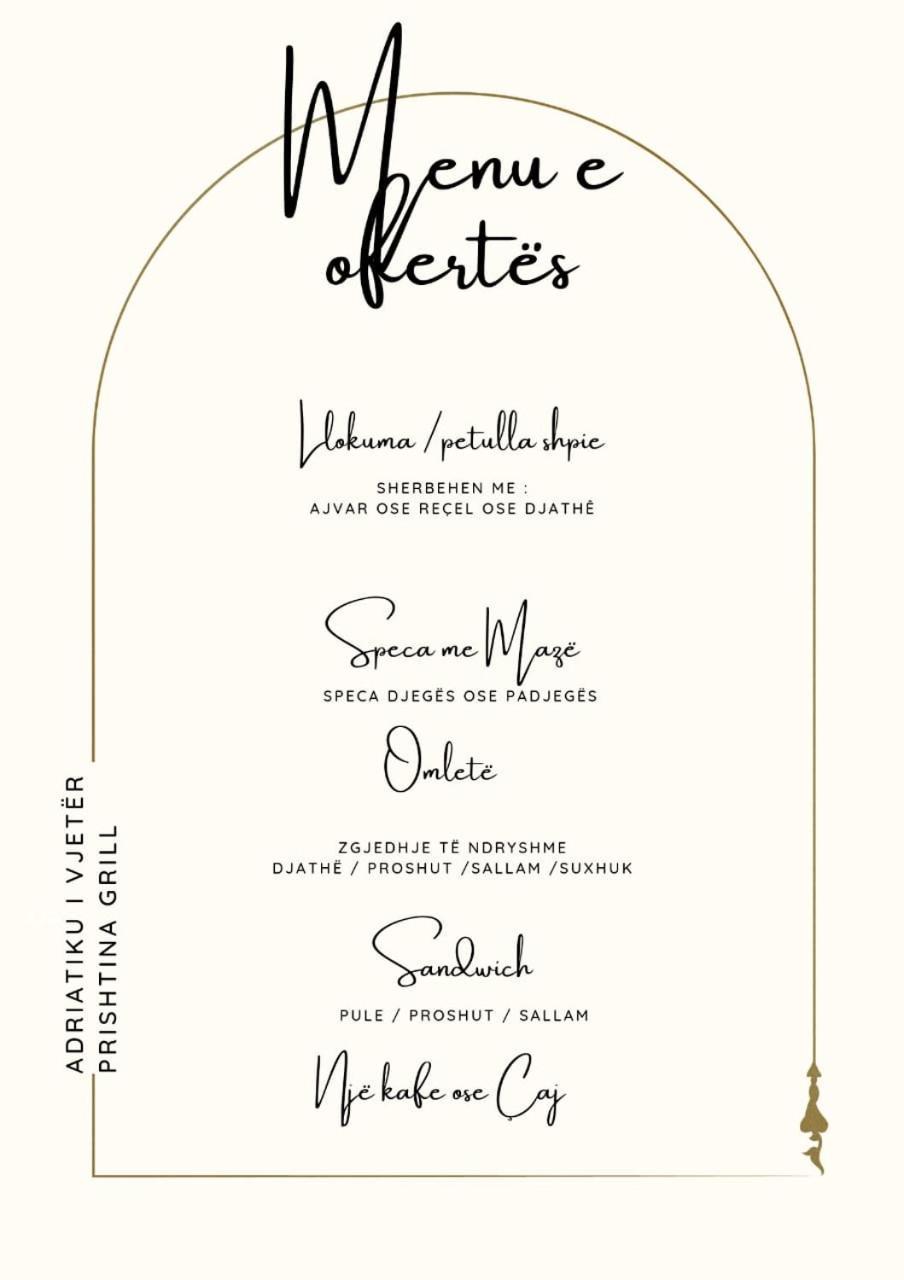 Menu e
ofertës
Llokuma / petulla shpie
SHERBEHEN ME :
AJVAR OSE REÇEL OSE DJATHÊ
Speca me Mazë
SPECA DJEGËS OSE PADJEGËS
Omletë
ZGJEDHJE TË NDRYSHME
DJATHË / PROSHUT /SALLAM /SUXHUK
Sandwich
PULE / PROSHUT / SALLAM
Një kafe ose Çaj
ADRIATIKU I VJETËR
PRISHTINA GRILL